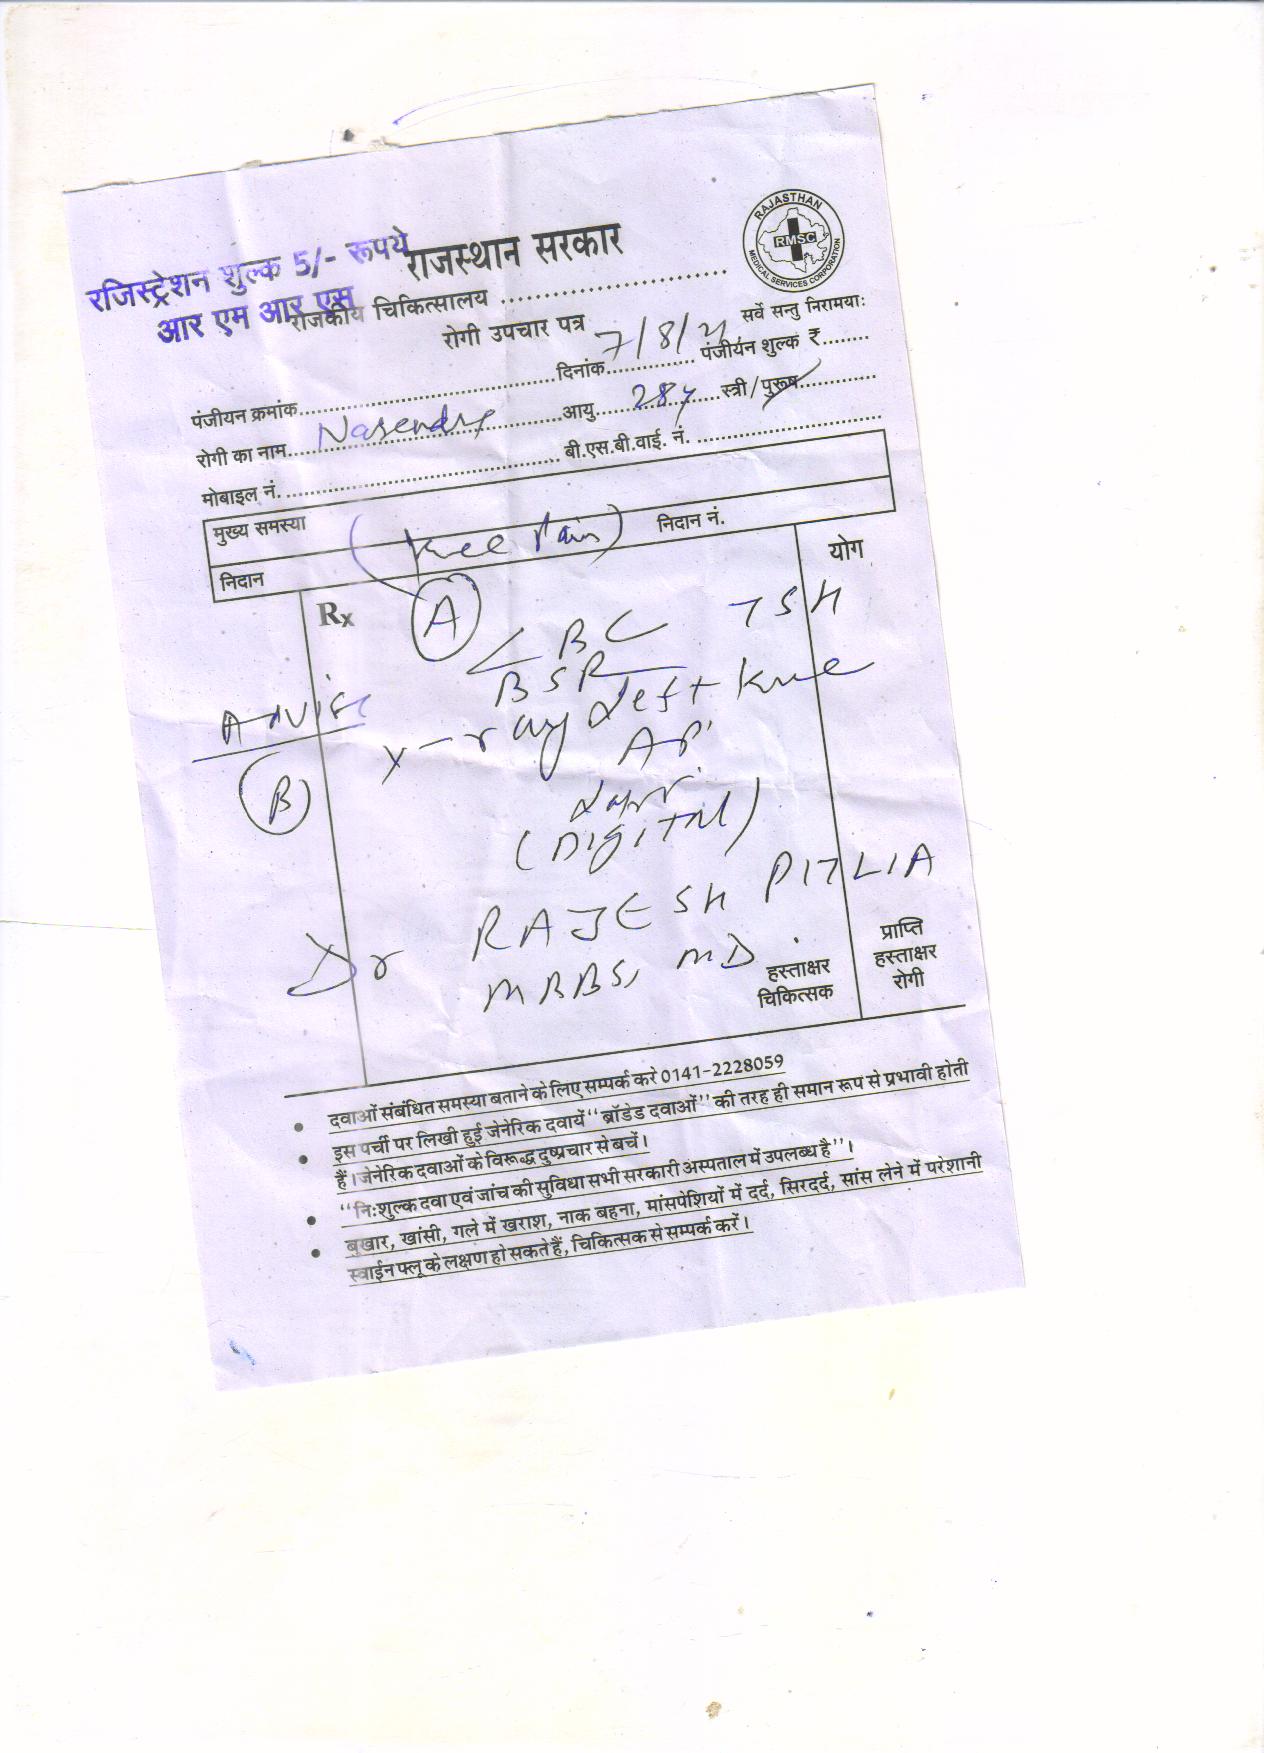 RAJASTHAN
RMSC
MEDICAL SERVICES CORPORATION
सर्वे सन्तु निरामयाः
रजिस्ट्रेशन शुल्क 5/- रूपये
आर एम आर एस
राजस्थान सरकार
राजकीय चिकित्सालय ..............................
रोगी उपचार पत्र
पंजीयन क्रमांक.............................. दिनांक 7/8/ पंजीयन शुल्क ₹........
रोगी का नाम Narendra आयु 28y स्त्री/पुरूष............
मोबाइल नं. .............................. बी.एस.बी.वाई. नं. ..............................
मुख्य समस्या (Knee Pain) निदान नं.
निदान
Rx (A) योग
CBC TSH
BSR
Advise X-ray Left Knee
AP
(B)
(DIGITAL)
Dr RAJESH PITLIA
MBBS, MD
हस्ताक्षर
चिकित्सक
प्राप्ति
हस्ताक्षर
रोगी
• दवाओं संबंधित समस्या बताने के लिए सम्पर्क करे 0141-2228059
• इस पर्ची पर लिखी हुई जेनेरिक दवायें "ब्रॉडेड दवाओं" की तरह ही समान रूप से प्रभावी होती
हैं। जेनेरिक दवाओं के विरूद्ध दुष्प्रचार से बचें।
• "निःशुल्क दवा एवं जांच की सुविधा सभी सरकारी अस्पताल में उपलब्ध है"।
• बुखार, खांसी, गले में खराश, नाक बहना, मांसपेशियों में दर्द, सिरदर्द, सांस लेने में परेशानी
स्वाईन फ्लू के लक्षण हो सकते हैं, चिकित्सक से सम्पर्क करें।